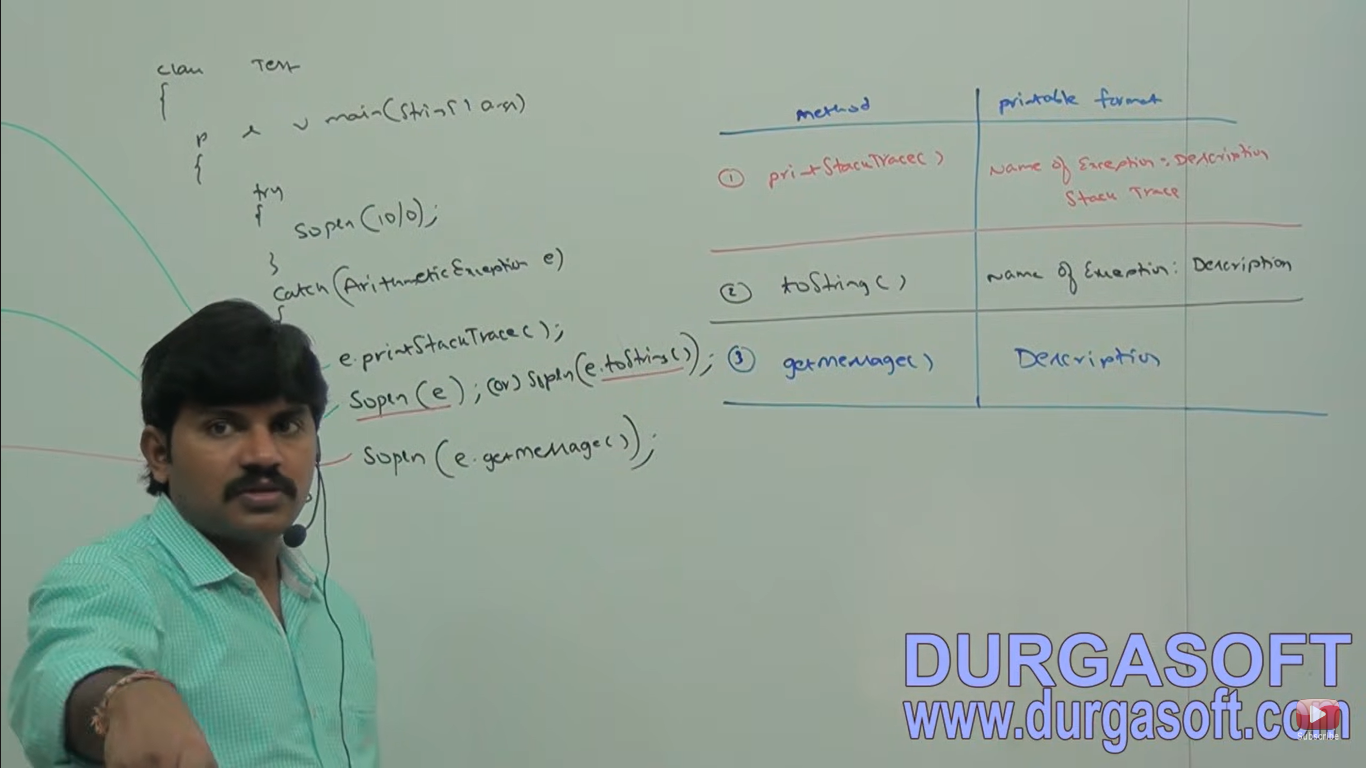 class Test
{
p s v main(String[] args)
{
try
{
Sopln(10/0);
}
catch(ArithmeticException e)
{
e.printStackTrace();
Sopln(e); (or) Sopln(e.toString());
Sopln(e.getMessage());
method printable format
① printStackTrace() Name of Exception: Description
Stack Trace
② toString() Name of Exception: Description
③ getMessage() Description
DURGASOFT
www.durgasoft.com
Subscribe